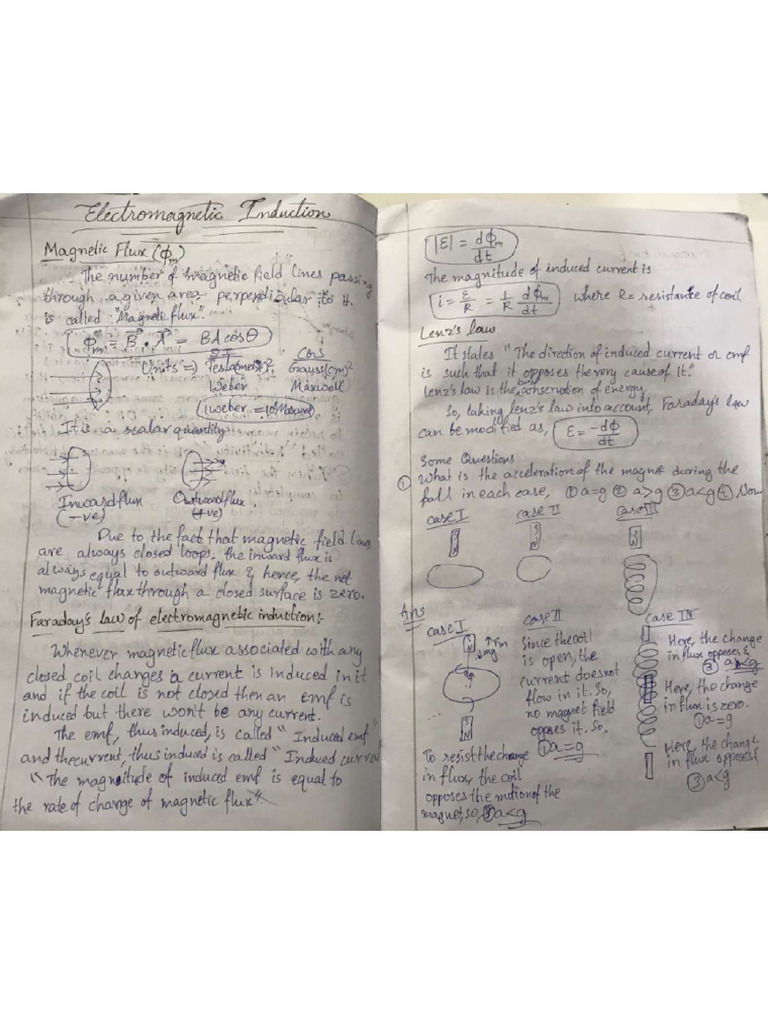 Electromagnetic Induction
Magnetic Flux (Φm)
The number of magnetic field lines passing
through a given area perpendicular to it
is called "Magnetic flux".
Φm = B⃗ . A⃗ = BA cosθ
SI CGS
Units ⇒ Tesla(meter)² Gauss(cm)²
Weber Maxwell
1 weber = 10⁸ Maxwell
It is a scalar quantity
Inward flux Outward flux
(-ve) (+ve)
Due to the fact that magnetic field lines
are always closed loops, the inward flux is
always equal to outward flux & hence, the net
magnetic flux through a closed surface is zero.
Faraday's law of electromagnetic induction:-
Whenever magnetic flux associated with any
closed coil changes a current is Induced in it
and if the coil is not closed then an emf is
induced but there won't be any current.
The emf, thus induced, is called "Induced emf"
and the current, thus induced is called "Induced current
"The magnitude of induced emf is equal to
the rate of change of magnetic flux".
|E| = dΦm/dt
The magnitude of induced current is
i = ε/R = 1/R dΦm/dt where R = resistance of coil
Lenz's law
It states "The direction of induced current or emf
is such that it opposes the very cause of it."
Lenz's law is the conservation of energy.
So, taking lenz's law into account, Faraday's law
can be modified as, E = -dΦ/dt
Some Questions
① What is the acceleration of the magnet during the
fall in each case, ① a=g ② a>g ③ a<g ④ Non
case I case II case III
Ans
case I
mg
To resist the change
in flux, the coil
opposes the motion of the
magnet, so, ③ a<g
case II
Since the coil
is open, the
current does not
flow in it. So,
no magnet field
opposes it. So,
① a=g
case III
Here, the change
in flux opposes &
③ a<g
Here, the change
in flux is zero.
① a=g
Here the change
in flux opposes &
③ a<g